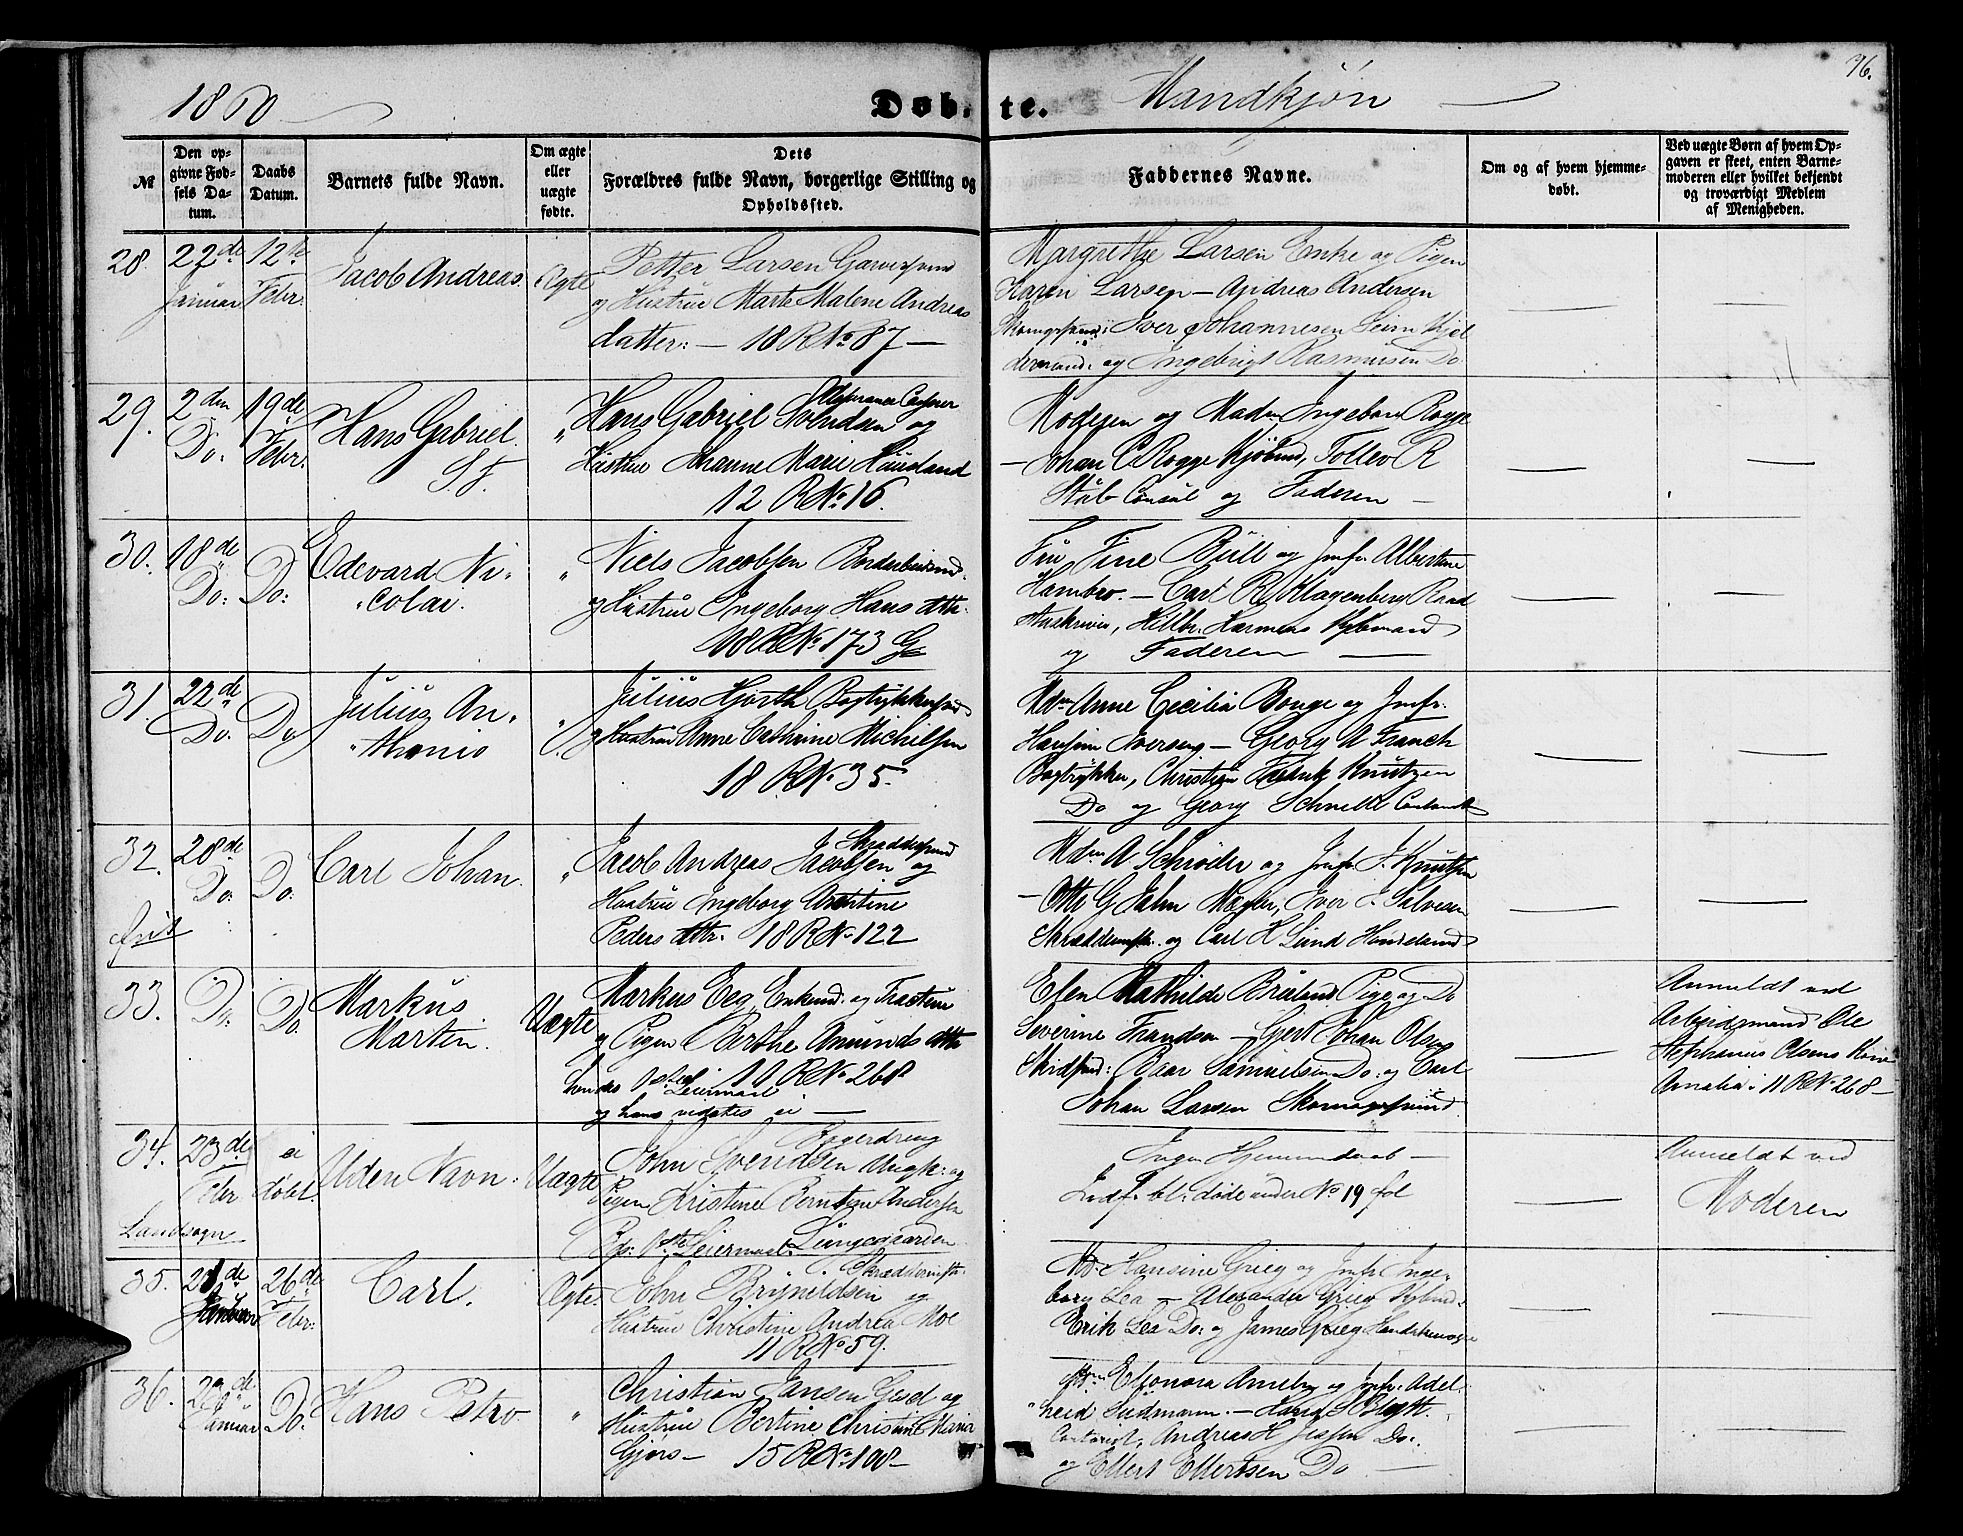 1860
Døb-te.
Mandkjøn
76.
№
Den op-
givne Fød-
sels Da-
tum.
Daabs
Datum.
Barnets fulde Navn.
Om ægte
eller
uægte
fødte.
Dets
Forældres fulde Navn, borgerlige Stilling og
Opholdssted.
Faddernes Navne.
Om og af hvem hjemme-
døbt.
Ved uægte Børn af hvem Op-
gaven er skeet, enten Barne-
moderen eller hvilket bekjendt
og troværdigt Medlem
af Menigheden.
28.
22de
Januar
12te
Febr.
Jacob Andreas.
Ægte
Petter Larsen Garversvend
og Hustrue Marte Malene Andreas
datter: — 18 R No 87 —
Margrethe Larsen Enke og Pigen
Karen Larsen — Andreas Andersen
Iver Johannesen Seim Kjel
dermand: og Engebrigt Rasmusen Do
29.
2den
Do.
19de
Febr.
Hans Gabriel.
S. F.
"
Hans Gabriel Svendsen og
Hustrue Johanne Marie Huusland
12 R No 16.
Moderen og Madm Ingeborg Rogge
— Johan C Rogge Kjøbmd, Tollev R
Stub Consul og Faderen —
30.
18de
Do:
Do:
Edevard Ni-
colai.
"
Niels Jacobsen
og Hustrue Ingeborg Hans dttr.
18 R No 173 G
Fru Fine Bull og Jmfr. Albertine
Hambro. — Carl R Klagenberg Raad
Hillbr. Harmens Kjbmand
og Faderen —
31.
22de
Do.
Do
Julius An-
thonio
"
Julius Hjorth Bogtrykkersvd
og Hustrue Anne Cathrine Michelsen
18 R No 35.
Mdm Anne Cecilia Bouge og Jmfr.
Hansine Iversen — Georg A Franck
Bogtrykker, Christian Fredrik Knutzen
Do og Georg Schnelle
32.
28de
Do.
Do.
frit
Carl Johan.
"
Skræddersvend
Jacob Andreas Jacobsen og
Hustrue Ingeborg
Peders dttr. 18 R No 122
Mdm A Schrøder og Jmfr J. Knutsen
— Otto G Jahn Mægler, Iver J. Salvesen
Skræddermstr. og Carl H Lund
33.
Do.
Do.
Markus
Martin.
Uægte
Markus Eeg Enkemd. og Tracteur
og Pigen Berthe Amunds dttr
11 R No 268
hendes 1ste Leiermaal
og hans vidstes ei —
Elen Mathilde Pige og Do
Severine Frandsen — Gjert Johan Olsen
Baar Samuelsen Do. og Carl
Johan Larsen Skomagersvend
Anmeldt ved
Arbeidsmand Ole
Stephanus Olsens Kone
Amalia i 11 R No 268 —
34.
23de
Febr
Landsogn
ei
døbt.
Uden Navn.
Uægte
Bagerdreng
John Svendsen Ungk. og
Pigen Kristine Berntine Andersen
1ste Leiermaal. Lungegaarden
Ingen Hjemmedaab —
Indf. bl. døde under No 19 fol
Anmeldt ved
Moderen
35.
21de
Januar
26de
Febr:
Carl.
Ægte.
Skræddermstr.
John Brynildsen og
Hustrue Christine Andrea Moe
11 R No 59.
Md. Hansine Grieg og Jmfr Inge-
borg Lea — Alexander Grieg Kjbmd.
Erik Lea Do: og James Grieg
36.
23de
Januar
Do.
Hans Petro
"
Christian Jansen Geed og
Hustrue Bertine Christine Maria
Gjørs — 15 R No 108 —
Mdm Eleonora Ameln og Jmfr. Adel-
heid Sudmann. — Hans S Blytt.
Contorist, Andreas H Jessen Do.
og Ellert Ellertsen Do —